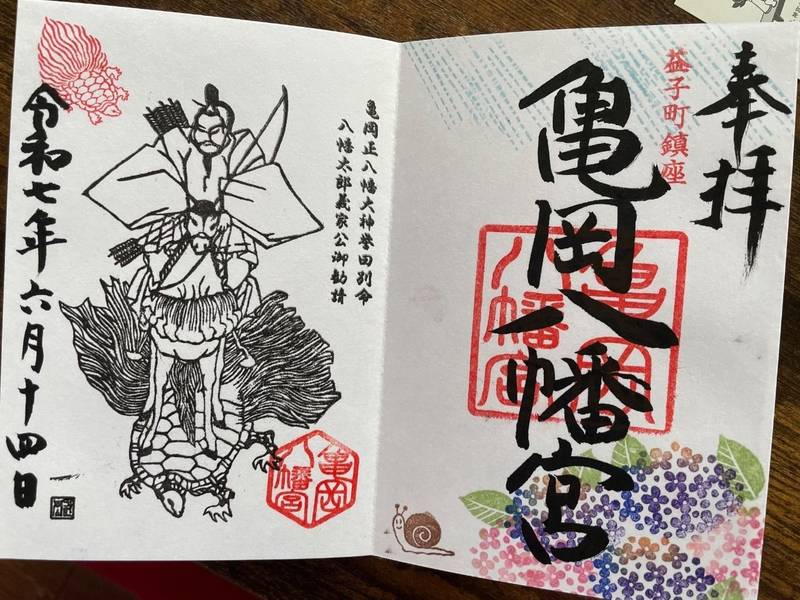 奉拝
益子町鎮座
亀岡八幡宮
亀岡八幡宮
亀岡正八幡大神誉田別命
八幡太郎義家公御勧請
令和七年六月十四日
亀岡
八幡宮